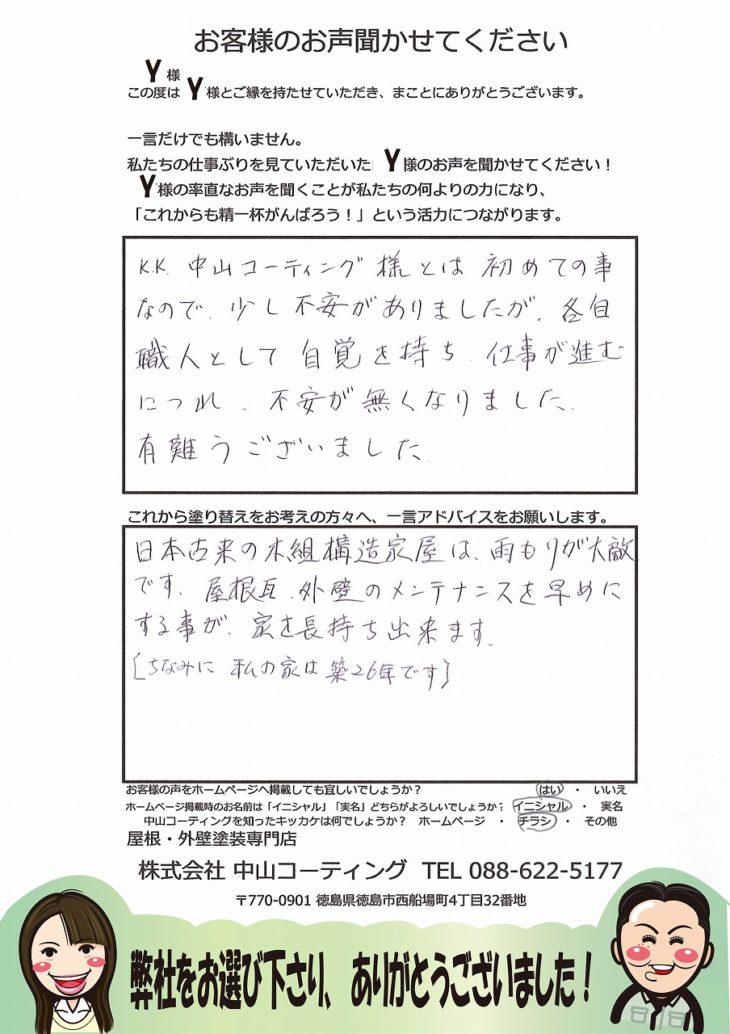 お客様のお声聞かせてください
Y様
この度は Y様とご縁を持たせていただき、まことにありがとうございます。
一言だけでも構いません。
私たちの仕事ぶりを見ていただいた Y様のお声を聞かせてください！
Y様の率直なお声を聞くことが私たちの何よりの力になり、
「これからも精一杯がんばろう！」という活力につながります。
K.K. 中山コーティング様とは初めての事
なので、少し不安がありましたが、各自
職人として自覚を持ち、仕事が進む
につれ、不安が無くなりました。
有難うございました。
これから塗り替えをお考えの方々へ、一言アドバイスをお願いします。
日本古来の木組構造家屋は、雨もりが大敵
です。屋根瓦、外壁のメンテナンスを早めに
する事が、家を長持ち出来ます。
[ちなみに 私の家は築26年です]
お客様の声をホームページへ掲載しても宜しいでしょうか？ はい ・ いいえ
ホームページ掲載時のお名前は「イニシャル」「実名」どちらがよろしいでしょうか？ イニシャル ・ 実名
中山コーティングを知ったキッカケは何でしょうか？ ホームページ ・ チラシ ・ その他
屋根・外壁塗装専門店
株式会社 中山コーティング TEL 088-622-5177
〒770-0901 徳島県徳島市西船場町4丁目32番地
弊社をお選び下さり、ありがとうございました！